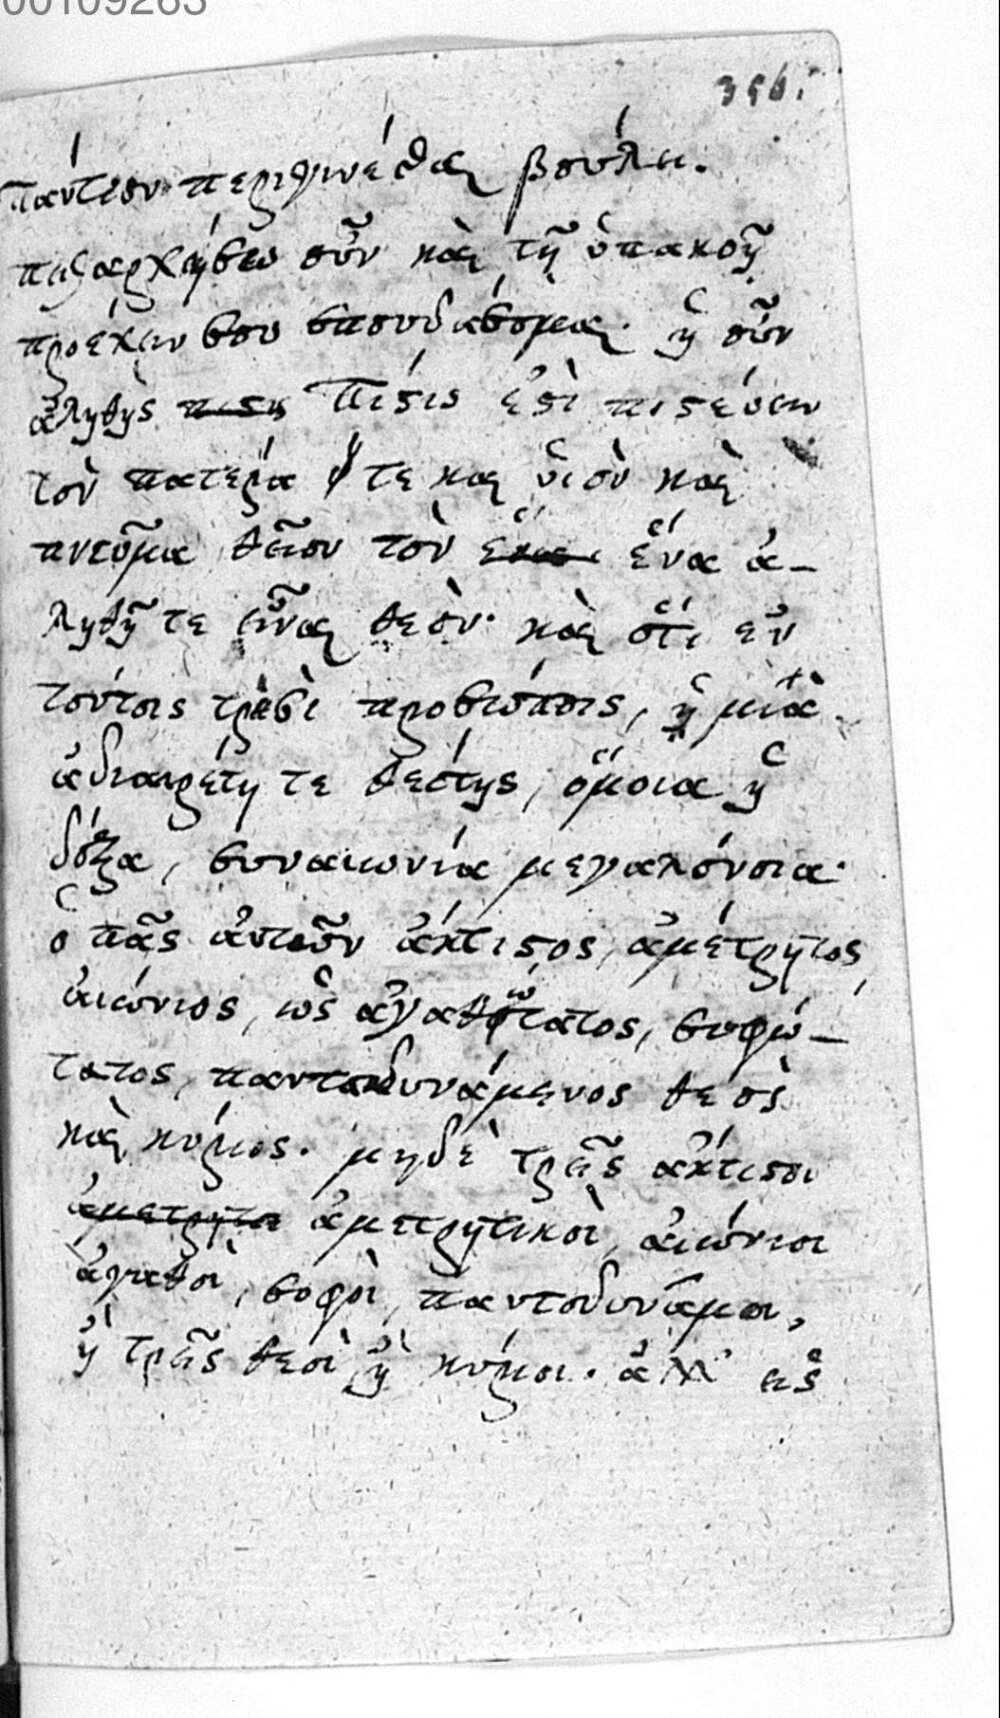 00109263
356.
πάντων περιγινέσθαι βούλει.
πειθαρχήσειν οὖν καὶ τῇ ὑπακοῇ
προέχειν σου σπουδάσομαι. ἡ οὖν
ἀληθὴς πίστις Πίστις ἐστὶ πιστεύειν
τὸν πατέρα τε καὶ ὑιὸν καὶ
πνεῦμα θεῖον τὸν ἕνα ἕνα ἀ-
ληθῆ τε εἶναι θεὸν. καὶ ὅτι ἐν
τούτοις τρισὶ προσώποις, ἡ μία
ἀδιαιρέτη τε θεότης, ὅμοια ἡ
δόξα, συναιωνία μεγαλόνοια.
ὁ πᾶς ἀυτῶν ἄκτιστος, ἀμέτρητος,
ἀιώνιος, ὡς ἀγαθώτατος, σοφώ-
τατος, παντοδυνάμενος θεὸς
καὶ κύριος. μηδὲ τρεῖς ἄκτιστοι
ἀμετρητοι ἀμετρητικοὶ, ἀιώνιοι
ἀγαθοὶ, σοφοὶ, παντοδυνάμοι,
ἢ τρεῖς θεοὶ ἢ κύριοι. ἀλλ' εἷς